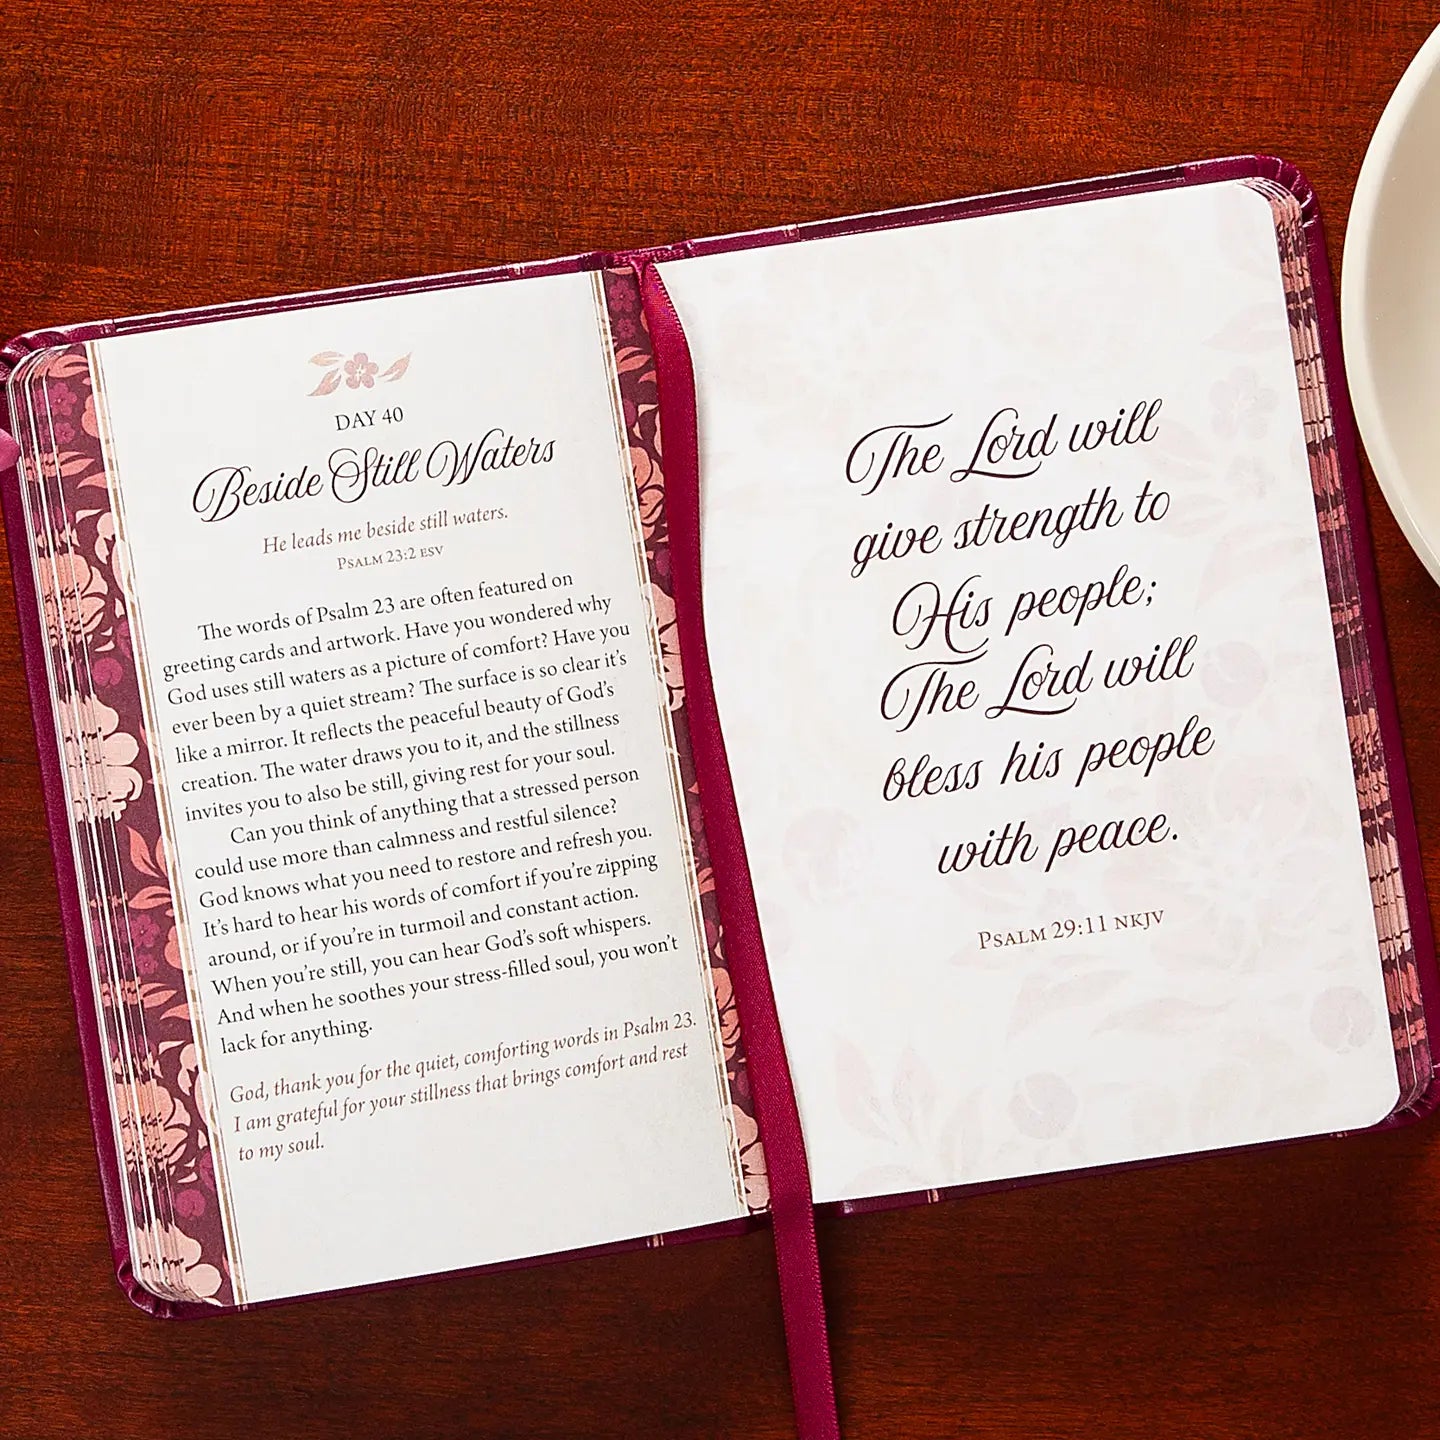 DAY 40
Beside Still Waters
He leads me beside still waters.
PSALM 23:2 ESV
The words of Psalm 23 are often featured on
greeting cards and artwork. Have you wondered why
God uses still waters as a picture of comfort? Have you
ever been by a quiet stream? The surface is so clear it's
like a mirror. It reflects the peaceful beauty of God's
creation. The water draws you to it, and the stillness
invites you to also be still, giving rest for your soul.
Can you think of anything that a stressed person
could use more than calmness and restful silence?
God knows what you need to restore and refresh you.
It's hard to hear his words of comfort if you're zipping
around, or if you're in turmoil and constant action.
When you're still, you can hear God's soft whispers.
And when he soothes your stress-filled soul, you won't
lack for anything.
God, thank you for the quiet, comforting words in Psalm 23.
I am grateful for your stillness that brings comfort and rest
to my soul.
The Lord will
give strength to
His people;
The Lord will
bless his people
with peace.
PSALM 29:11 NKJV